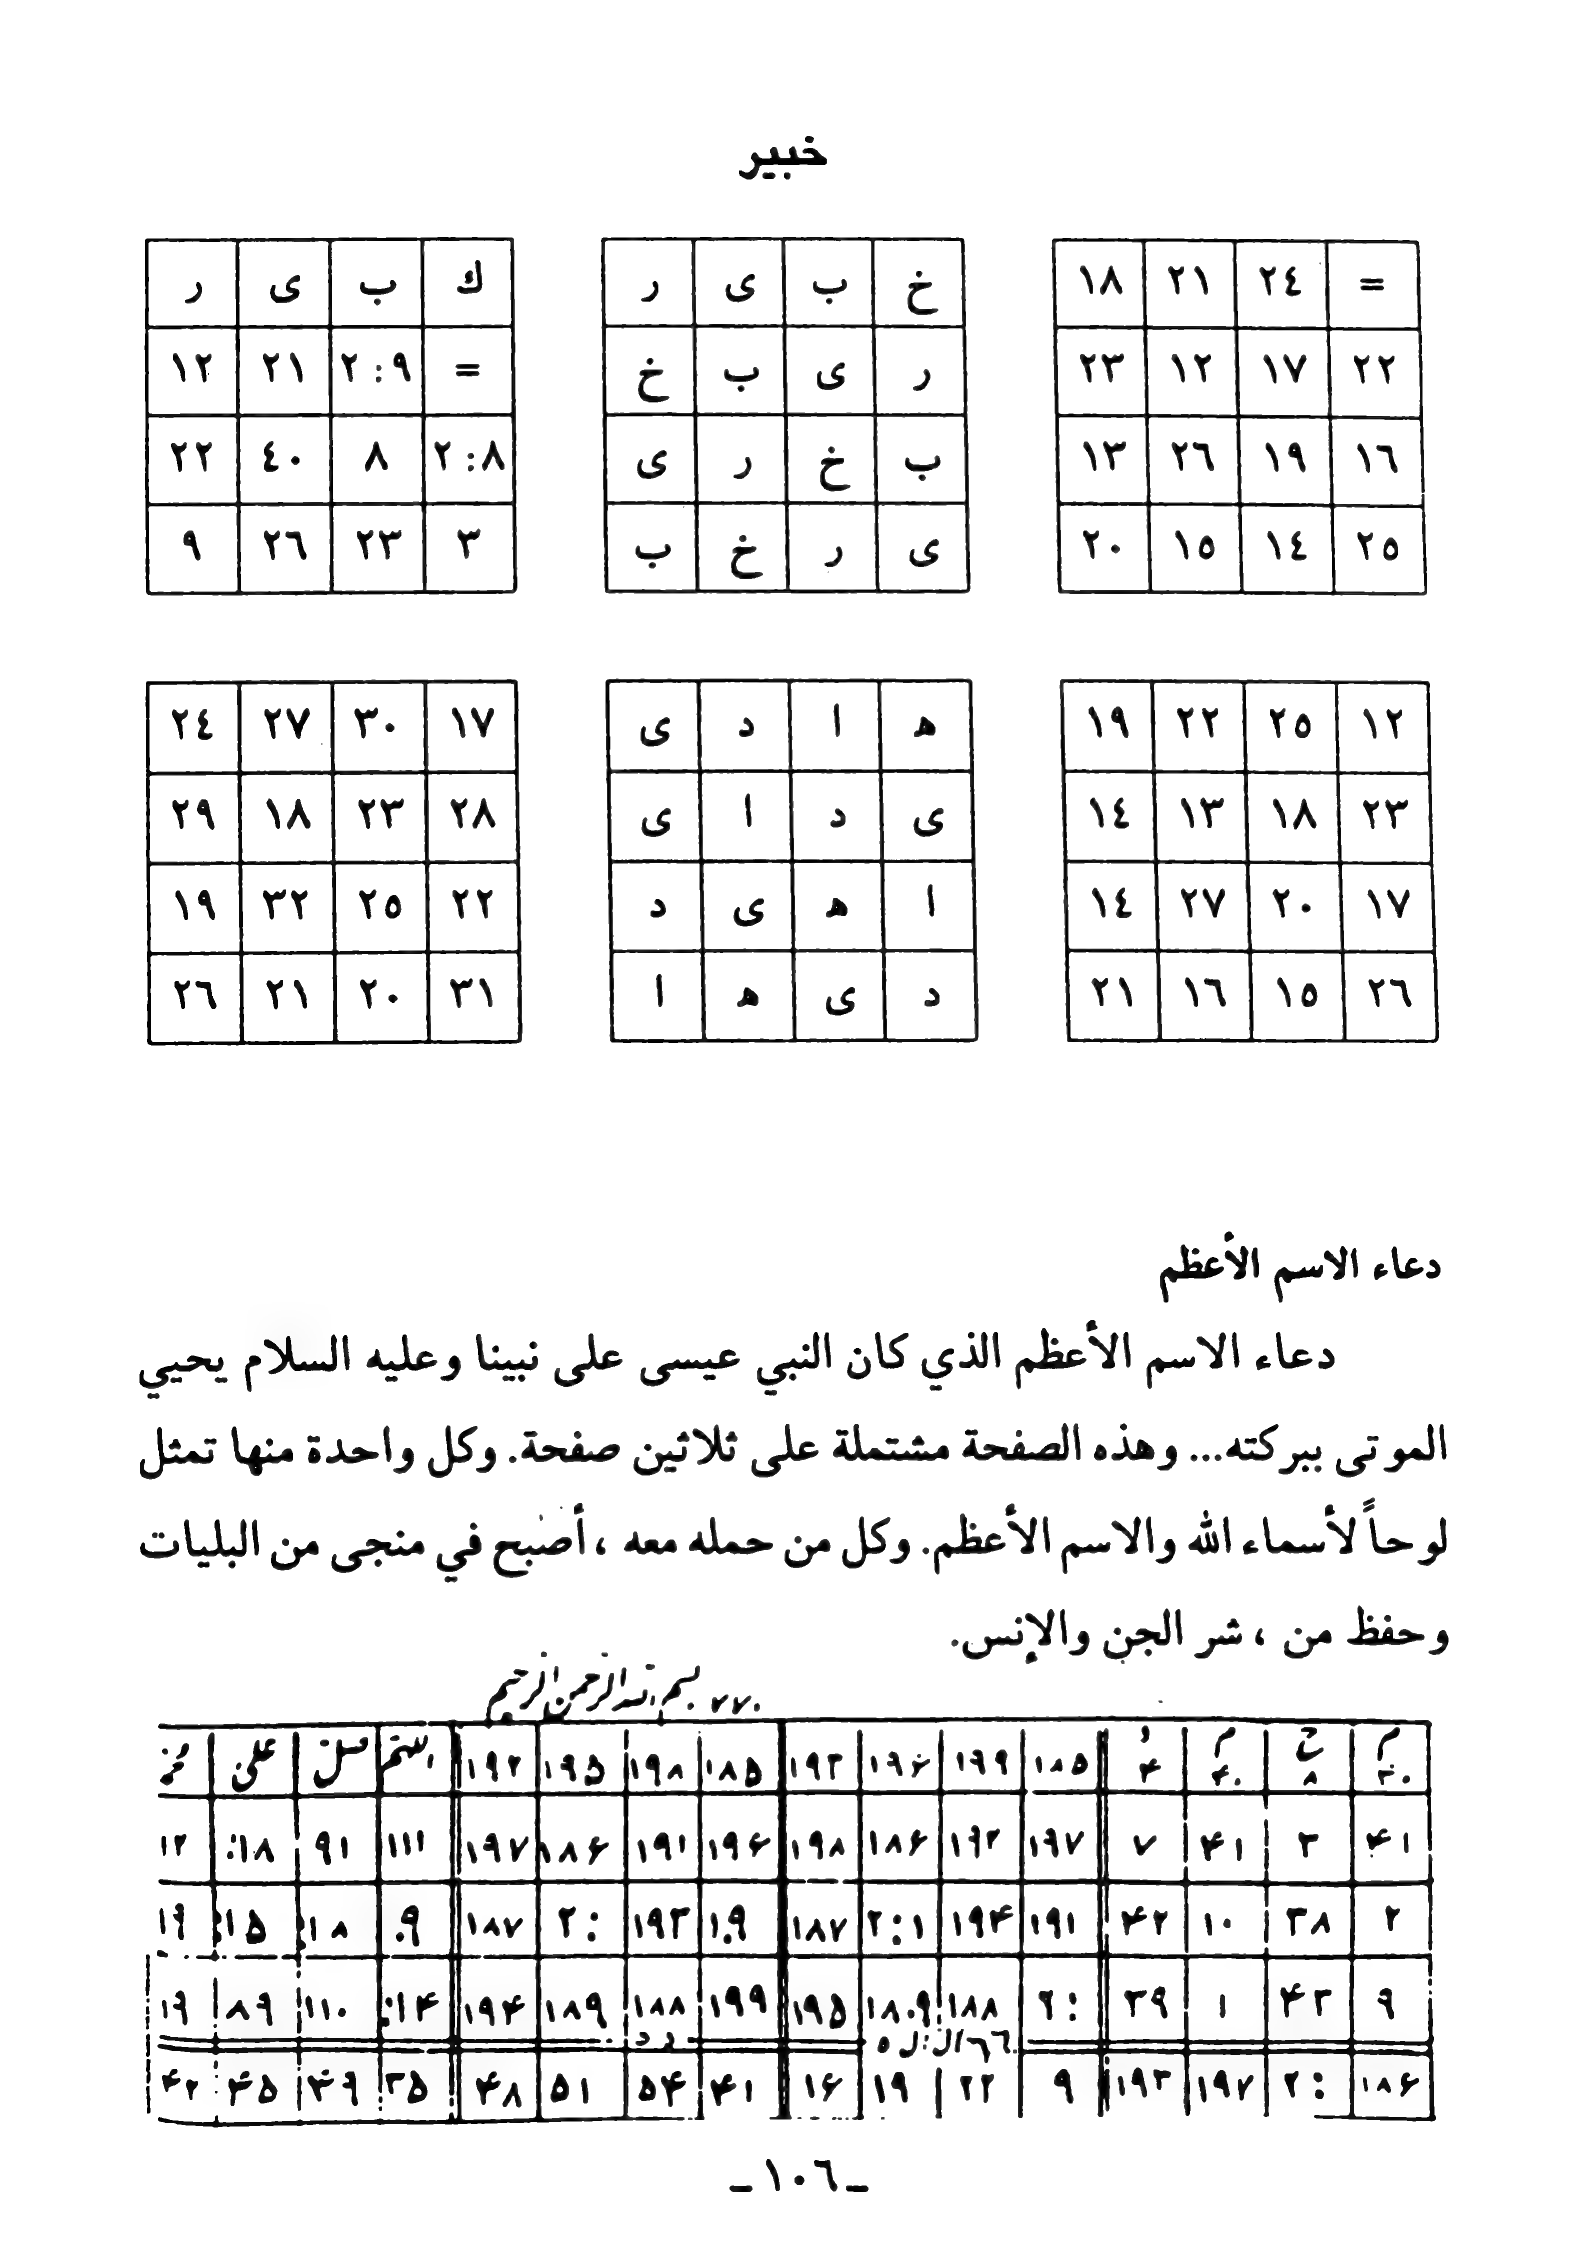 خبير
= ٢٤ ٢١ ١٨
٢٢ ١٧ ١٢ ٢٣
١٦ ١٩ ٢٦ ١٣
٢٥ ١٤ ١٥ ٢٠
خ ب ى ر
ر ى ب خ
ب خ ر ى
ى ر خ ب
ك ب ى ر
= ٢:٩ ٢١ ١٢
٢:٨ ٨ ٤٠ ٢٢
٣ ٢٣ ٢٦ ٩
١٢ ٢٥ ٢٢ ١٩
٢٣ ١٨ ١٣ ١٤
١٧ ٢٠ ٢٧ ١٤
٢٦ ١٥ ١٦ ٢١
ه ا د ى
ى د ا ى
ا ه ى د
د ى ه ا
١٧ ٣٠ ٢٧ ٢٤
٢٨ ٢٣ ١٨ ٢٩
٢٢ ٢٥ ٣٢ ١٩
٣١ ٢٠ ٢١ ٢٦
دعاء الاسم الأعظم
دعاء الاسم الأعظم الذي كان النبي عيسى على نبينا وعليه السلام يحيي
الموتى ببركته... وهذه الصفحة مشتملة على ثلاثين صفحة. وكل واحدة منها تمثل
لوحاً لأسماء الله والاسم الأعظم. وكل من حمله معه ، أصبح في منجى من البليات
وحفظ من ، شر الجن والإنس.
بسم الله الرحمن الرحيم
م ح م د ١٨۵ ١٩٩ ١٩۶ ١٩٣ ١٨۵ ١٩٨ ١٩۵ ١٩٢ اللهم صل على
۴١ ٣ ۴١ ٧ ١٩٧ ١٩٢ ١٨۶ ١٩٨ ١٩۶ ١٩١ ١٨۶ ١٩٧ ١١١ ٩١ ١٨: ١٢
٢ ٣٨ ١٠ ۴٢ ١٩١ ١٩۴ ٢:١ ١٨٧ ١٩٣ ٢: ١٨٧ ١٩
٩ ۴٣ ١ ٣٩ ٢: ١٨٨ ١٩۵ ١٩٩ ١٨٨ ١٨٩ ١٩۴ ١١٠ ٨٩ ١٩
١٨۶ ٢: ١٩٧ ١٩٣ ٩ ٢٢ ١٩ ١۶ ۴١ ۵۴ ۵١ ۴٨ ٣۵ ۴٩ ۴۵ ۴٢
ـ ١٠٦ ـ